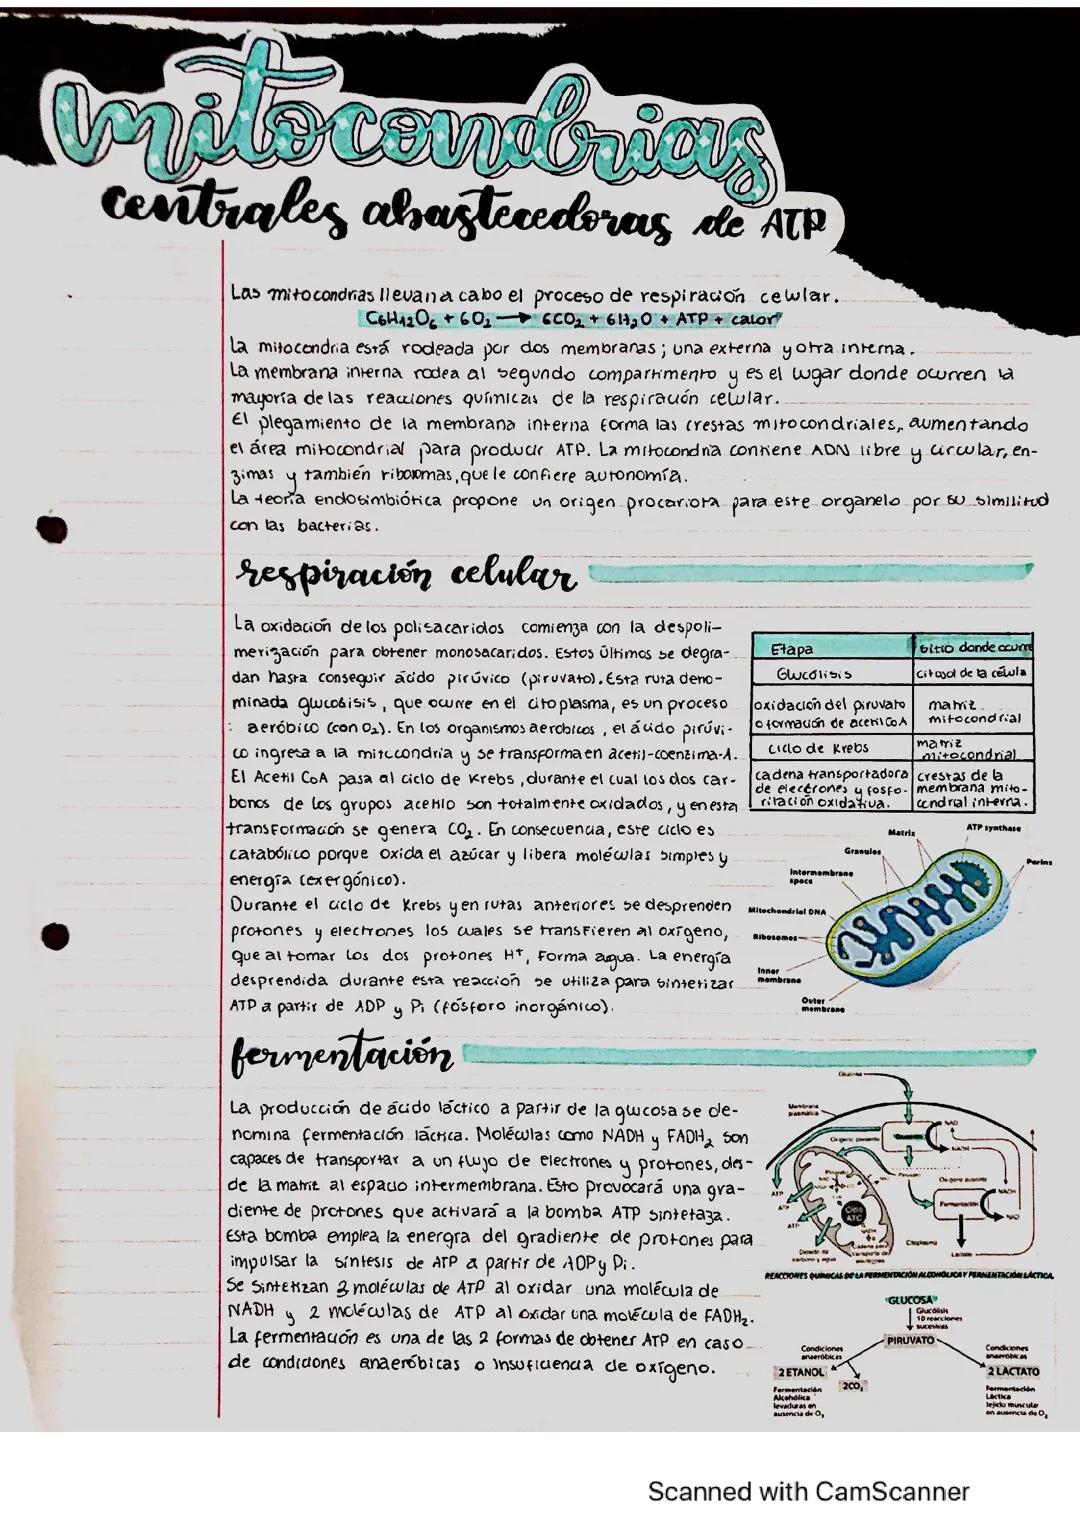 mitocondrias
centrales abastecedoras de ATP
Las mitocondrias llevan a cabo el proceso de respiración celular.
C6H12O6 + 6O2 → 6CO2 + 6H2O + ATP + calor
La mitocondria está rodeada por dos membranas; una externa y otra interna.
La membrana interna rodea al segundo compartimento y es el lugar donde ocurren la
mayoría de las reacciones químicas de la respiración celular.
El plegamiento de la membrana interna forma las crestas mitocondriales, aumentando
el área mitocondrial para producir ATP. La mitocondria contiene ADN libre y circular, en-
zimas y también ribosomas, que le confiere autonomía.
La teoría endosimbiótica propone un origen procariota para este organelo por su similitud
con las bacterias.
respiración celular
La oxidación de los polisacaridos comienza con la despoli-
merización para obtener monosacaridos. Estos últimos se degra-
dan hasta conseguir ácido pirúvico (piruvato). Esta ruta deno-
minada glucósisis, que ocurre en el citoplasma, es un proceso
aeróbico (con O2). En los organismos aerobicos, el ácido pirúvi-
co ingresa a la mitocondria y se transforma en acetil-coenzima-A.
El Acetil CoA pasa al ciclo de Krebs, durante el cual los dos car-
bonos de los grupos acetilo son totalmente oxidados, y en esta
transformación se genera CO2. En consecuencia, este ciclo es
catabólico porque oxida el azúcar y libera moléculas simples y
energía (exergónico).
Durante el ciclo de Krebs y en rutas anteriores se desprenden
protones y electrones los cuales se transfieren al oxígeno,
que al tomar los dos protones H+, forma agua. La energía
desprendida durante esta reacción se utiliza para sintetizar
ATP a partir de ADP y Pi (fósforo inorgánico).
Etapa | sitio donde ocurre
Glucólisis | citosol de la célula
oxidación del piruvato | matriz
o formación de acetil CoA | mitocondrial
Ciclo de Krebs | matriz
mitocondrial
cadena transportadora | crestas de la
de electrones y fosfo- | membrana mito-
rilación oxidativa. | condrial interna.
Matrix
ATP synthase
Granules
Porins
Intermembrane
space
Mitochondrial DNA
Ribosomes
Inner
membrane
Outer
membrane
fermentación
La producción de ácido láctico a partir de la glucosa se de-
nomina fermentación láctica. Moléculas como NADH y FADH2 son
capaces de transportar a un flujo de electrones y protones, des-
de la matriz al espacio intermembrana. Esto provocará una gra-
diente de protones que activará a la bomba ATP sintetaza.
Esta bomba emplea la energía del gradiente de protones para
impulsar la síntesis de ATP a partir de ADP y Pi.
Se sintetizan 3 moléculas de ATP al oxidar una molécula de
NADH y 2 moléculas de ATP al oxidar una molécula de FADH2.
La fermentación es una de las 2 formas de obtener ATP en caso
de condiciones anaeróbicas o insuficiencia de oxígeno.
Glucosa
Membrana
plasmática
NAD
Oxígeno presente
Glucólisis
NADH
Piruvato
Oxígeno ausente
NADH
ATP
Fermentación
ATP
NAD
ATP
Ciclo
ATC
Citoplasma
Lactato
Dióxido de
carbono y agua
Cadena para
transporte de
electrones
REACCIONES QUIMICAS DE LA FERMENTACIÓN ALCOHÓLICA Y FERMENTACIÓN LÁCTICA
GLUCOSA
Glucólisis
10 reacciones
sucesivas
PIRUVATO
Condiciones
anaeróbicas
Condiciones
anaeróbicas
2 ETANOL
2CO2
2 LACTATO
Fermentación
Alcohólica
levaduras en
ausencia de O2
Fermentación
Láctica
tejido muscular
en ausencia de O2
Scanned with CamScanner